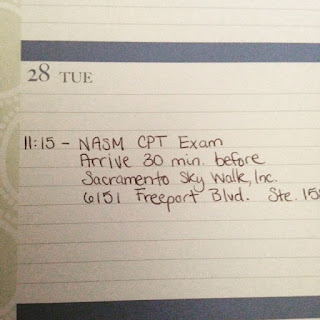 28 TUE
11:15 - NASM CPT Exam
Arrive 30 min. before
Sacramento Sky Walk, Inc.
6151 Freeport Blvd. Ste.